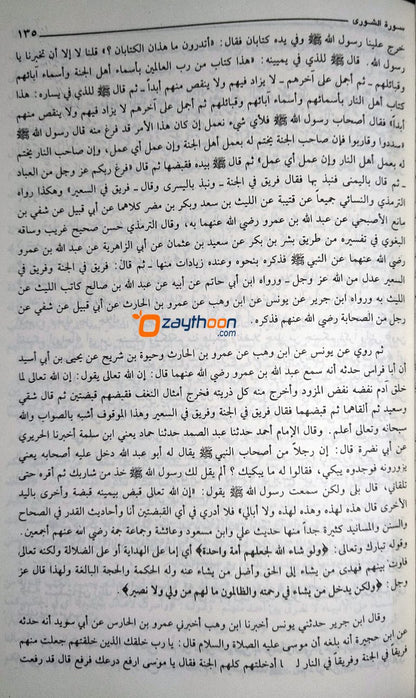 سورة الشورى ١٣٥
خرج علينا رسول الله ﷺ وفي يده كتابان فقال: «أتدرون ما هذان الكتابان؟» قلنا لا إلا أن تخبرنا يا
رسول الله. قال ﷺ للذي في يمينه: «هذا كتاب من رب العالمين بأسماء أهل الجنة وأسماء آبائهم
وقبائلهم ـ ثم أجمل على آخرهم ـ لا يزاد فيهم ولا ينقص منهم أبداً ـ ثم قال ﷺ للذي في يساره: هذا
كتاب أهل النار بأسمائهم وأسماء آبائهم وقبائلهم ثم أجمل على آخرهم لا يزاد فيهم ولا ينقص منهم
أبداً» فقال أصحاب رسول الله ﷺ فلأي شيء نعمل إن كان هذا الأمر قد فرغ منه قال رسول الله ﷺ
«سددوا وقاربوا فإن صاحب الجنة يختم له بعمل أهل الجنة وإن عمل أي عمل، وإن صاحب النار يختم
له بعمل أهل النار وإن عمل أي عمل» ثم قال ﷺ بيده فقبضها ثم قال «فرغ ربكم عز وجل من العباد
ـ ثم قال باليمنى فنبذ بها فقال فريق في الجنة ـ ونبذ باليسرى وقال ـ فريق في السعير» وهكذا رواه
الترمذي والنسائي جميعاً عن قتيبة عن الليث بن سعد وبكر بن مضر كلاهما عن أبي قبيل عن شفي بن
ماتع الأصبحي عن عبد الله بن عمرو رضي الله عنهما به، وقال الترمذي حسن صحيح غريب وساقه
البغوي في تفسيره من طريق بشر بن بكر عن سعيد بن عثمان عن أبي الزاهرية عن عبد الله بن عمرو
رضي الله عنهما عن النبي ﷺ فذكره بنحوه وعنده زيادات منها ـ ثم قال: فريق في الجنة وفريق في
السعير عدل من الله عز وجل ـ ورواه ابن أبي حاتم عن أبيه عن عبد الله بن صالح كاتب الليث عن
الليث به ورواه ابن جرير عن يونس عن ابن وهب عن عمرو بن الحارث عن أبي قبيل عن شفي عن
رجل من الصحابة رضي الله عنهم فذكره.
Ozaythoon
.com
ثم روي عن يونس عن ابن وهب عن عمرو بن الحارث وحيوة بن شريح عن يحيى بن أبي أسيد
أن أبا فراس حدثه أنه سمع عبد الله بن عمرو رضي الله عنهما يقول: إن الله تعالى يقول: إن الله تعالى لما
خلق آدم نفضه نفض المزود وأخرج منه كل ذريته فخرج أمثال النغف فقبضهم قبضتين ثم قال شقي
وسعيد ثم ألقاهما ثم قبضهما فقال فريق في الجنة وفريق في السعير وهذا الموقوف أشبه بالصواب والله
سبحانه وتعالى أعلم. وقال الإمام أحمد حدثنا عبد الصمد حدثنا حماد يعني ابن سلمة أخبرنا الجريري
عن أبي نضرة قال: إن رجلاً من أصحاب النبي ﷺ يقال له أبو عبد الله دخل عليه أصحابه يعني
يزورونه فوجدوه يبكي، فقالوا له ما يبكيك؟ ألم يقل لك رسول الله ﷺ خذ من شاربك ثم أقره حتى
تلقاني، قال بلى ولكن سمعت رسول الله ﷺ يقول: «إن الله تعالى قبض بيمينه قبضة وأخرى باليد
الأخرى قال هذه لهذه وهذه لهذه ولا أبالي» فلا أدري في أي القبضتين أنا وأحاديث القدر في الصحاح
والسنن والمسانيد كثيرة جداً منها حديث علي وابن مسعود وعائشة وجماعة جمة رضي الله عنهم أجمعين.
وقوله تبارك وتعالى: ﴿ولو شاء الله لجعلهم أمة واحدة﴾ أي إما على الهداية أو على الضلالة ولكنه تعالى
فاوت بينهم فهدى من يشاء إلى الحق وأضل من يشاء عنه وله الحكمة والحجة البالغة ولهذا قال عز
وجل: ﴿ولكن يدخل من يشاء في رحمته والظالمون ما لهم من ولي ولا نصير﴾.
وقال ابن جرير حدثني يونس أخبرنا ابن وهب أخبرني عمرو بن الحارس عن أبي سويد أنه حدثه
عن ابن حجيرة أنه بلغه أن موسى عليه الصلاة والسلام قال: يا رب خلقك الذين خلقتهم جعلت منهم
فريقاً في الجنة وفريقاً في النار ا أدخلتهم كلهم الجنة فقال يا موسى ارفع درعك فرفع قال قد رفعت